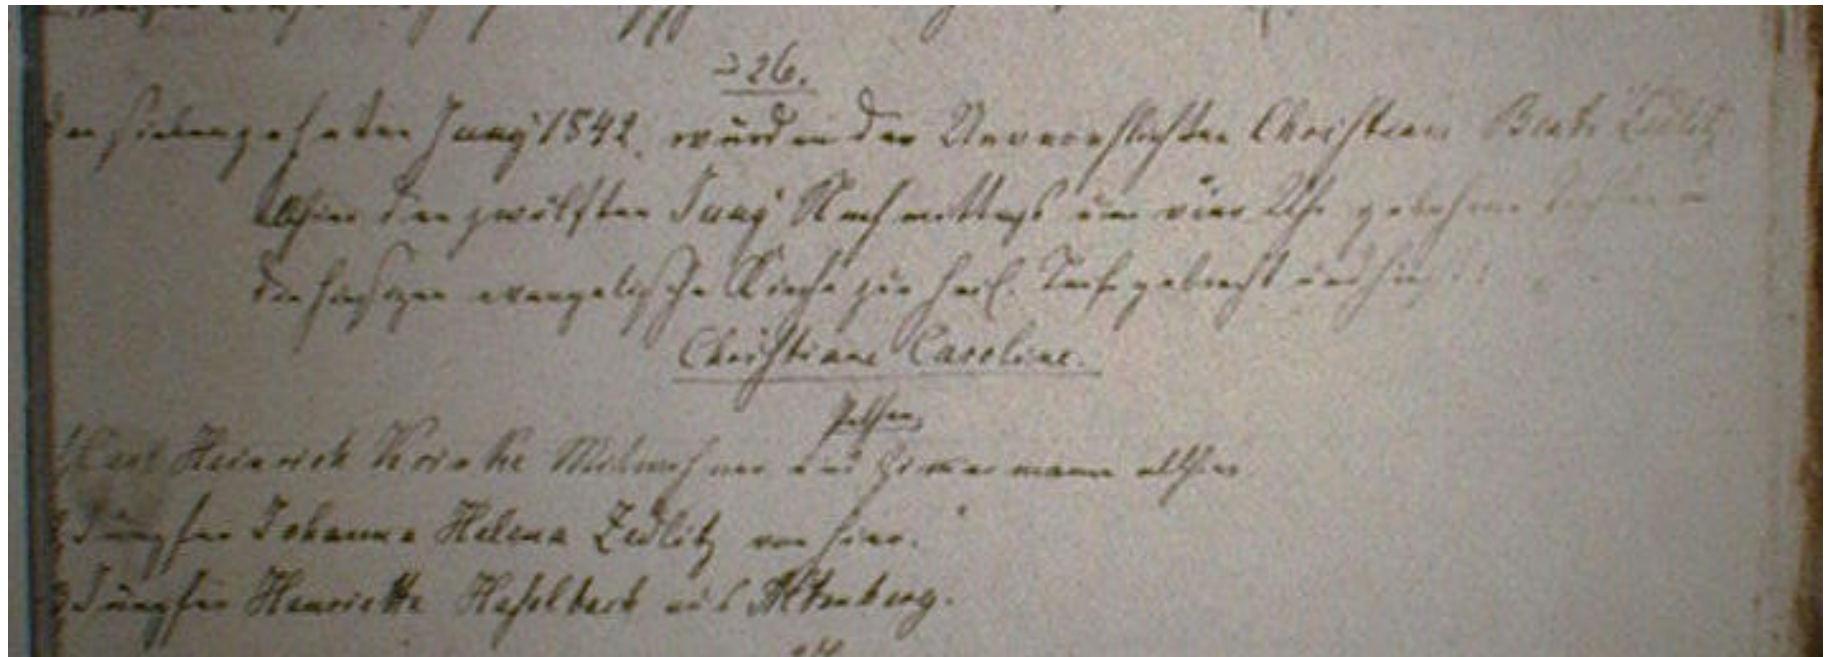 26.
Den siebenzehnten Juny 1842. wurde in der Unverehlichten Christian Beate Zedlitz
allhier den zwölften Juny Nachmittags um vier Uhr gebohrne Tochter in
die hiesigen evangelische Kirche zur heil. Taufe gebracht und hieß:
Christiane Caroline.
Pathen,
Carl Heinrich Krinke Mitwohner und Zimmermann allhier
Jungfer Johanna Helena Zedlitz von hier.
Jungfer Henriette Haselbach aus Altenberg.